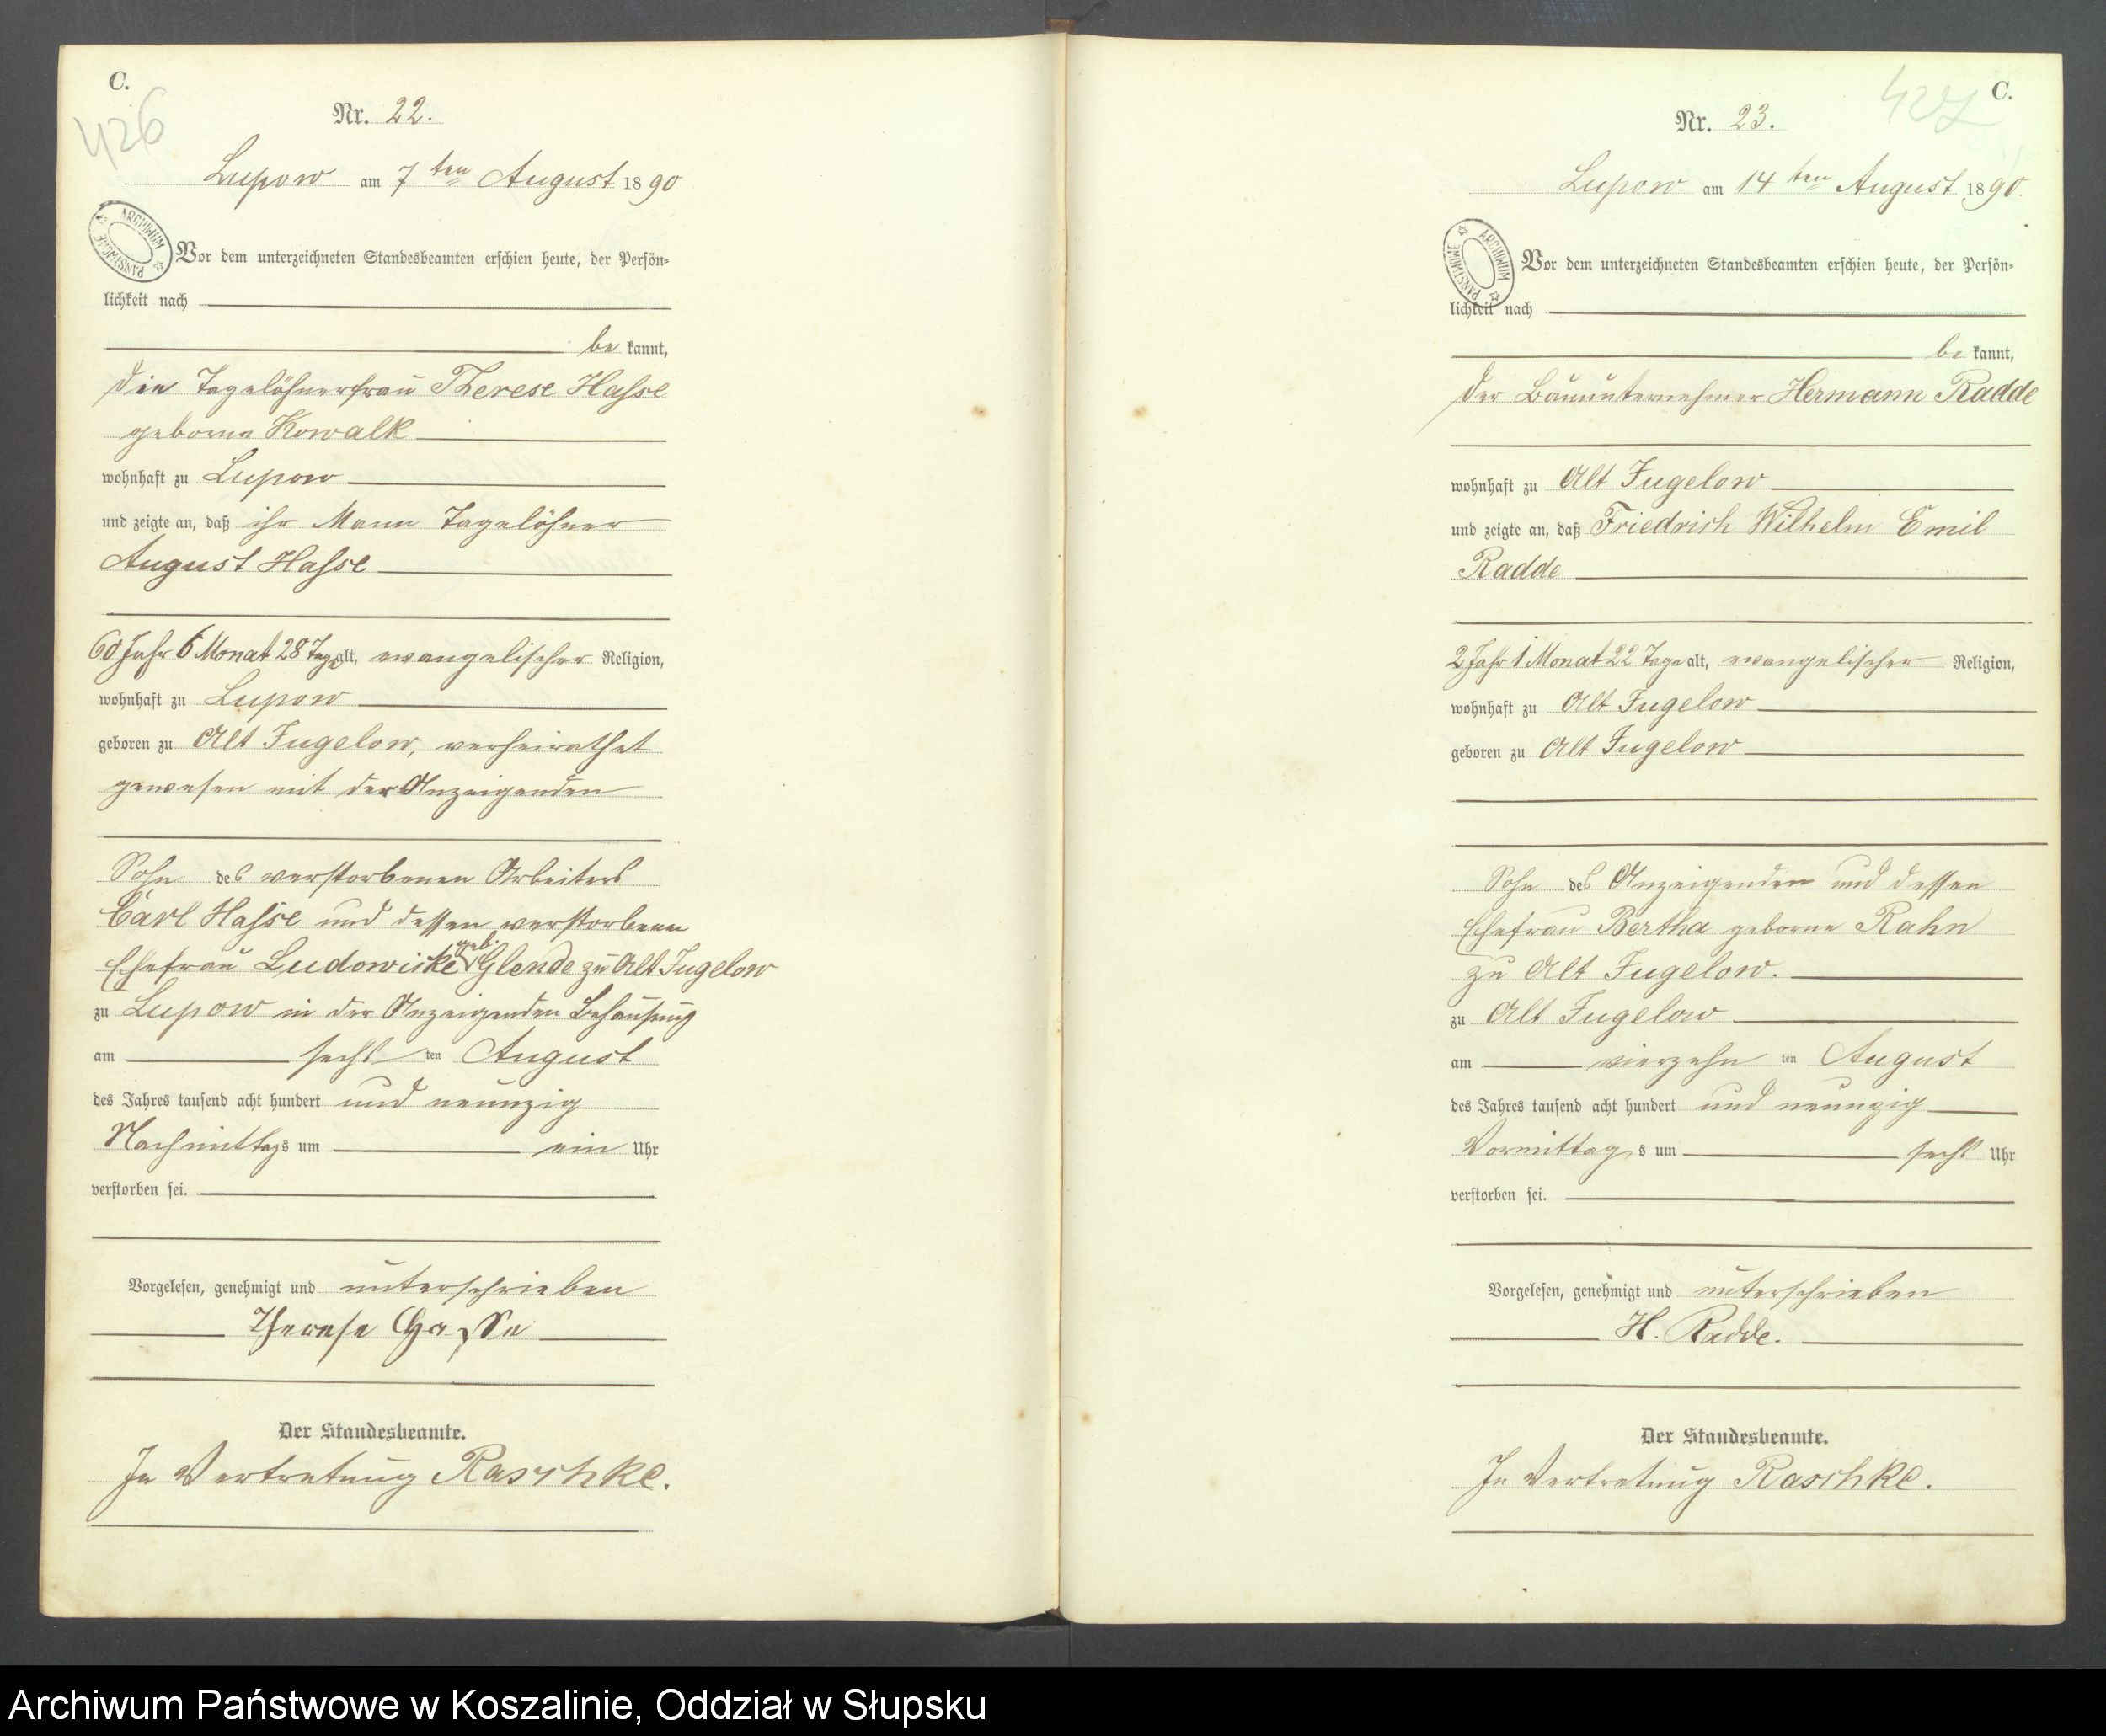 C.
426
Nr. 22.
Lupow am 7ten August 1890
ARCHIWUM PAŃSTWOWE
Vor dem unterzeichneten Standesbeamten erschien heute, der Persön-
lichkeit nach
be kannt,
die Tagelöhnerfrau Therese Hasse
geborne Kowalk
wohnhaft zu Lupow
und zeigte an, daß ihr Mann Tagelöhner
August Hasse
60 Jahr 6 Monat 28 Tage alt, evangelischer Religion,
wohnhaft zu Lupow
geboren zu Alt Jugelow, verheirathet
gewesen mit der Anzeigenden
Sohn des verstorbenen Arbeiters
Carl Hasse und dessen verstorbene
geb.
Ehefrau Ludowicke Glende zu Alt Jugelow
zu Lupow in der Anzeigenden Behausung
am sechsten August
des Jahres tausend acht hundert und neunzig
Nachmittags um ein Uhr
verstorben sei.
Vorgelesen, genehmigt und unterschrieben
Therese Hasse
Der Standesbeamte.
In Vertretung Raschke.
C.
427
Nr. 23.
Lupow am 14ten August 1890.
ARCHIWUM PAŃSTWOWE
Vor dem unterzeichneten Standesbeamten erschien heute, der Persön-
lichkeit nach
be kannt,
der Bauunternehmer Hermann Radde
wohnhaft zu Alt Jugelow
und zeigte an, daß Friedrich Wilhelm Emil
Radde
2 Jahr 1 Monat 22 Tage alt, evangelischer Religion,
wohnhaft zu Alt Jugelow
geboren zu Alt Jugelow
Sohn des Anzeigenden und dessen
Ehefrau Bertha geborne Rahn
zu Alt Jugelow.
zu Alt Jugelow
am vierzehnten August
des Jahres tausend acht hundert und neunzig
Vormittags um sechs Uhr
verstorben sei.
Vorgelesen, genehmigt und unterschrieben
H. Radde.
Der Standesbeamte.
In Vertretung Raschke.
Archiwum Państwowe w Koszalinie, Oddział w Słupsku